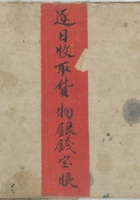 逐日收取貨物銀錢宝賬